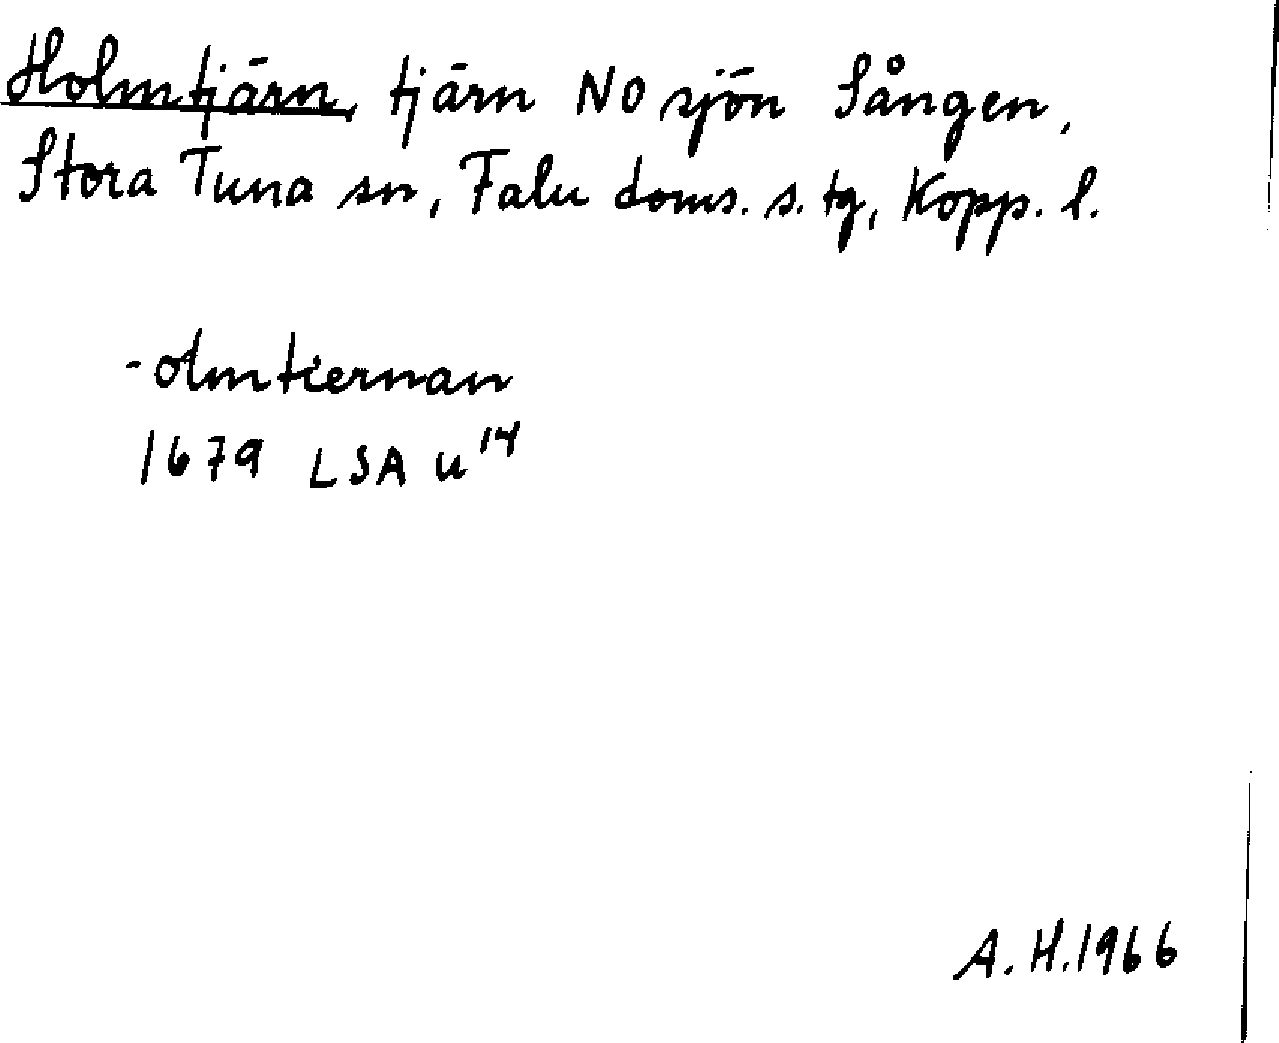 Holmtjärn, tjärn NO sjön Sången,
Stora Tuna sn, Falu doms. s. tg, Kopp. l.
-olmtiernan
1679 LSA U¹⁴
A. H. 1966